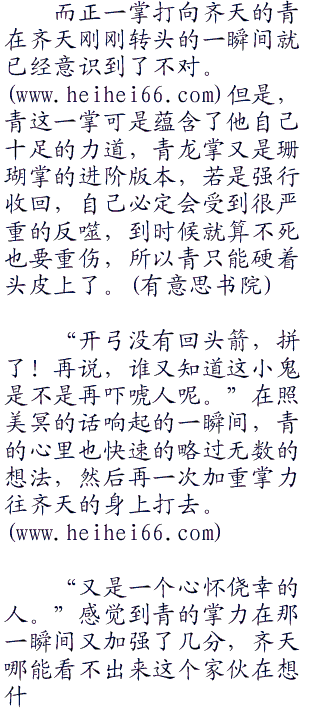 而正一掌打向齐天的青
在齐天刚刚转头的一瞬间就
已经意识到了不对。
(www.heihei66.com)但是，
青这一掌可是蕴含了他自己
十足的力道，青龙掌又是珊
瑚掌的进阶版本，若是强行
收回，自己必定会受到很严
重的反噬，到时候就算不死
也要重伤，所以青只能硬着
头皮上了。(有意思书院)
“开弓没有回头箭，拼
了！再说，谁又知道这小鬼
是不是再吓唬人呢。”在照
美冥的话响起的一瞬间，青
的心里也快速的略过无数的
想法，然后再一次加重掌力
往齐天的身上打去。
(www.heihei66.com)
“又是一个心怀侥幸的
人。”感觉到青的掌力在那
一瞬间又加强了几分，齐天
哪能看不出来这个家伙在想
什